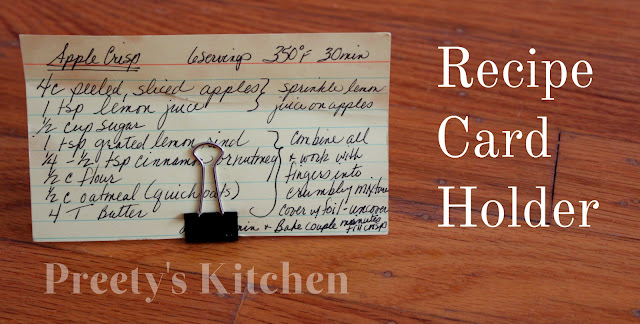 Apple Crisp 6 servings 350°F 30 min
4 c peeled, sliced apples } sprinkle lemon
1 tsp lemon juice } juice on apples
½ cup sugar
1 tsp grated lemon rind } Combine all
¼ - ½ tsp cinnamon or nutmeg & work with
½ c flour fingers into
½ c oatmeal (quick oats) crumbly mixture
4 T butter cover w/ foil - uncover
min & Bake couple minutes
till crisp
Recipe
Card
Holder
Preety's Kitchen